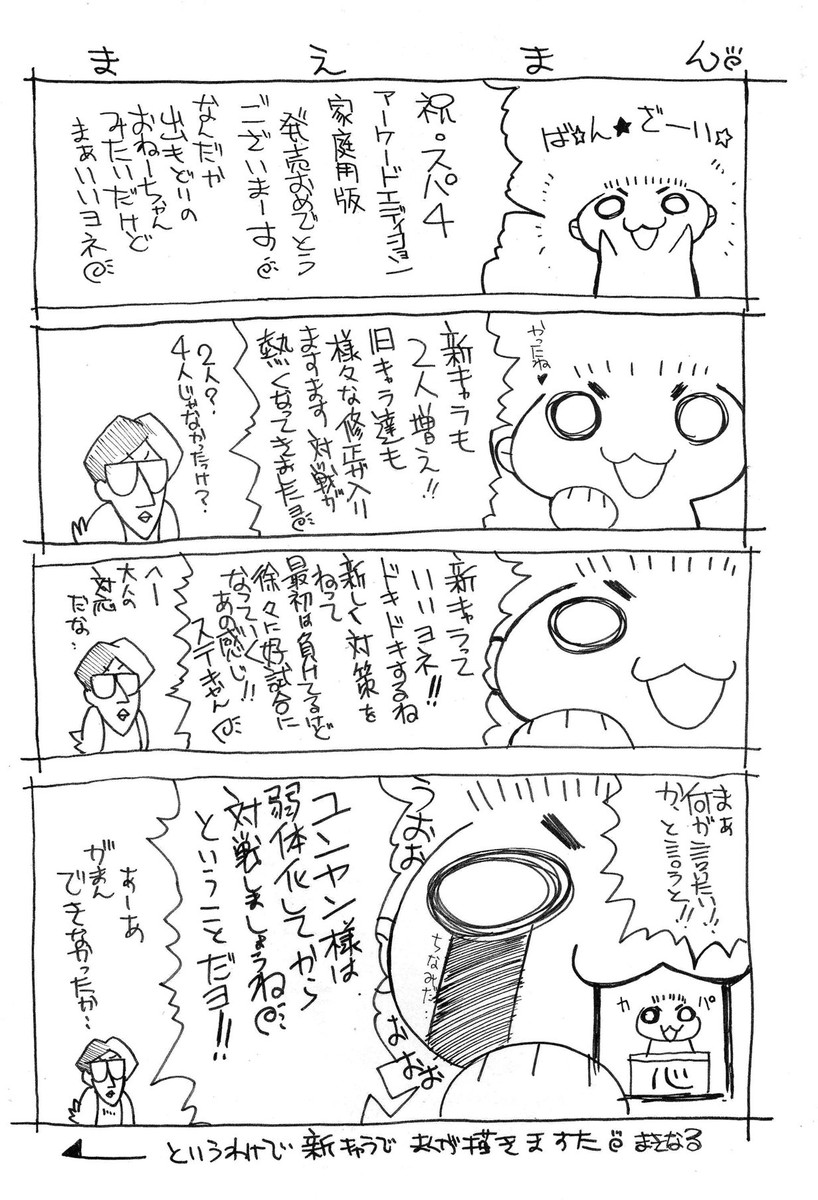 まえまん
ば☆ん★ざーい☆
祝。スパ4
アーケードエディション
家庭用版
発売おめでとう
ございまーす
なんだか
出もどりの
おねーちゃん
みたいだけど
まぁいいヨネ
かったね♥
新キャラも
2人増え!!
旧キャラ達も
様々な修正が入り
ますます対戦が
熱くなってきましたヨ
2人?
4人じゃなかったっけ?
新キャラって
いいヨネ!!
ドキドキするね
新しく対策を
ねって
最初は負けてるけど
徐々に好試合に
なっていく
あの感じ!!
ステキやん
へー
大人の
対応
だな…
まぁ
何が言いたい!!
か、と言うと!!
カパ
心
うおお
なおお
ちなみだ…
ユンヤン様は
弱体化してから
対戦しましょうね
ということだヨー!!
あーあ
がまん
できなかったか…
というわけで 新キャラで まんが描きますた まさなる